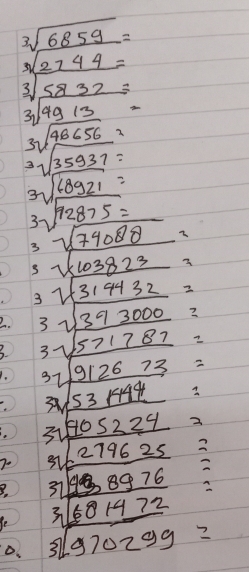 3√6859 =
3√2744 =
3√5832 =
3√4913 =
3√46656 =
3√35937 =
3√68921 =
3√72875 =
3√74088 =
3√103823 =
3√319432 =
3√393000 =
3√571787 =
3√912673 =
3√531444 =
3√405224 =
3√279625 =
3√438976 =
3√681472 =
3√970299 =